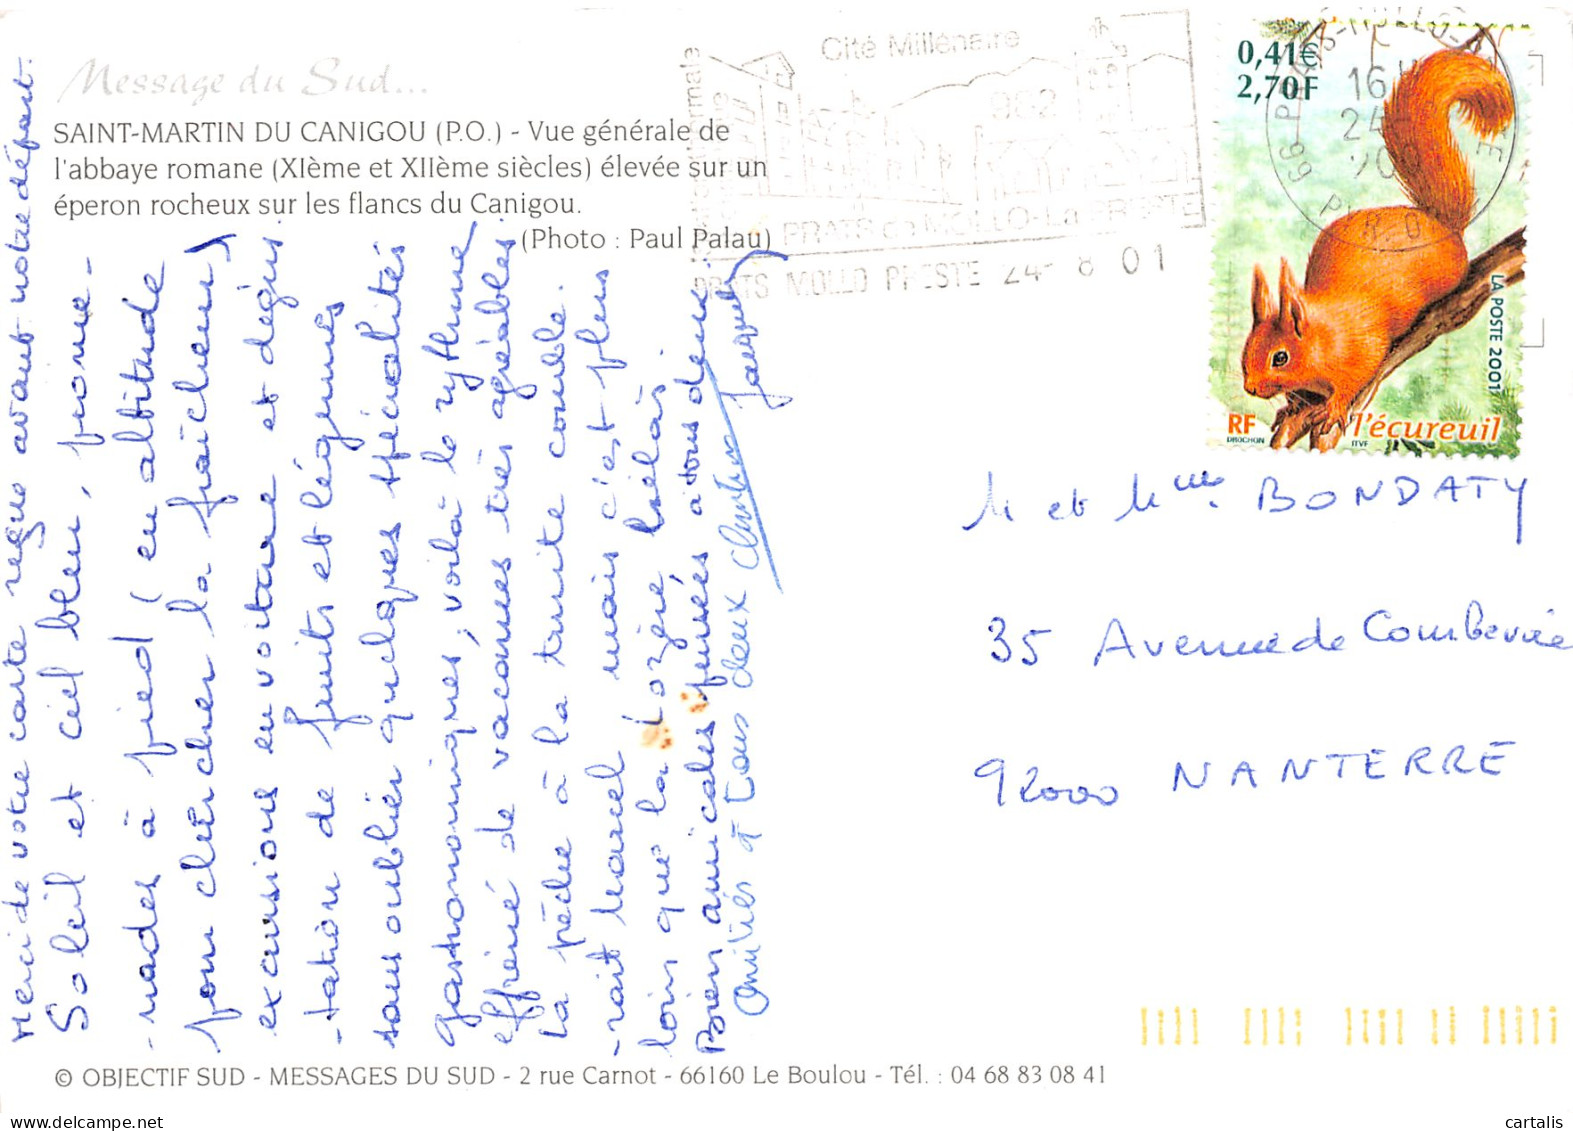 Message du Sud...
SAINT-MARTIN DU CANIGOU (P.O.) - Vue générale de
l'abbaye romane (XIème et XIIème siècles) élevée sur un
éperon rocheux sur les flancs du Canigou.
(Photo : Paul Palau)
Merci de votre carte reçue avant notre départ.
Soleil et ciel bleu, prome-
-nades à pied (en altitude
pour chercher la fraîcheur)
excursions en voiture et dégus-
-tation de fruits et légumes
sans oublier quelques spécialités
gastronomiques, voilà le rythme
effréné de vacances très agréables.
La pêche à la truite comble-
-rait Marcel mais c'est plus
loin que la Lozère hélas.
Bien amicales pensées à tous deux.
Jacqueline
Amitiés à tous deux
Cité Millénaire
982
PRATS de MOLLO-La PRESTE
PRATS MOLLO PRESTE 24- 8 01
0,41€
2,70F
66 PRATS-MOLLO-LA PRESTE
16H
24-
PYR. OR.
LA POSTE 2001
RF
DROCHON
ITVF
l'écureuil
M et Mme. BONDATY
35 Avenue de Combevoie
92000 NANTERRE
© OBJECTIF SUD - MESSAGES DU SUD - 2 rue Carnot - 66160 Le Boulou - Tél. : 04 68 83 08 41
cartalis